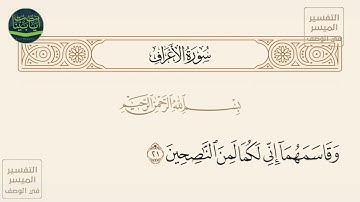 التفسير
الميسر
في الوصف
سُورَةُ الأَعْرَافِ
بِسْمِ اللَّهِ الرَّحْمَٰنِ الرَّحِيمِ
وَقَاسَمَهُمَا إِنِّي لَكُمَا لَمِنَ النَّاصِحِينَ ٢١
التفسير
الميسر
في الوصف